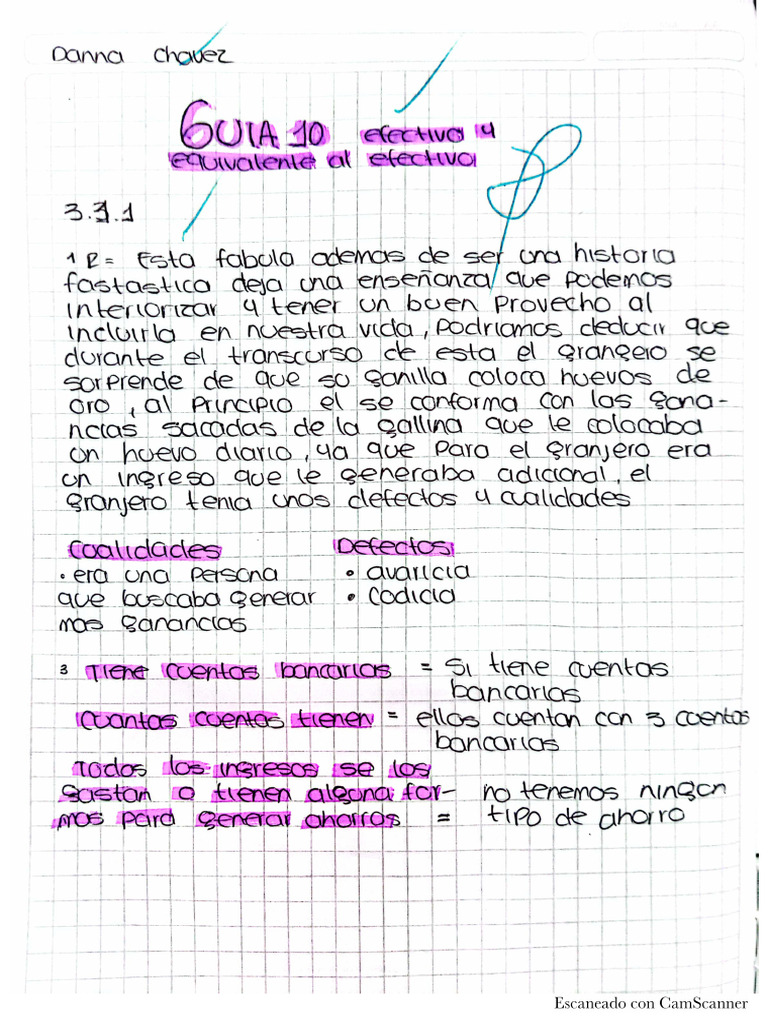 Danna Chavez
GUIA 10 efectivo y
equivalente al efectivo
3.3.1
1 R= Esta fabula ademas de ser una historia
fastastica deja una enseñanza que podemos
interiorizar y tener un buen provecho al
incluirla en nuestra vida, podriamos deducir que
durante el transcurso de esta el grangero se
sorprende de que su ganilla coloca huevos de
oro, al principio el se conforma con las gana-
ncias sacadas de la gallina que le colocaba
un huevo diario, ya que para el granjero era
un ingreso que le generaba adicional, el
granjero tenia unos defectos y cualidades
Cualidades Defectos
• era una persona • avaricia
que buscaba generar • codicia
mas ganancias
3 Tiene cuentas bancarias = Si tiene cuentas
bancarias
Cuantas cuentas tienen = ellos cuentan con 3 cuentas
bancarias
Todos los ingresos se los
gastan o tienen alguna for- no tenemos ningun
mas para generar ahorros = tipo de ahorro
Escaneado con CamScanner